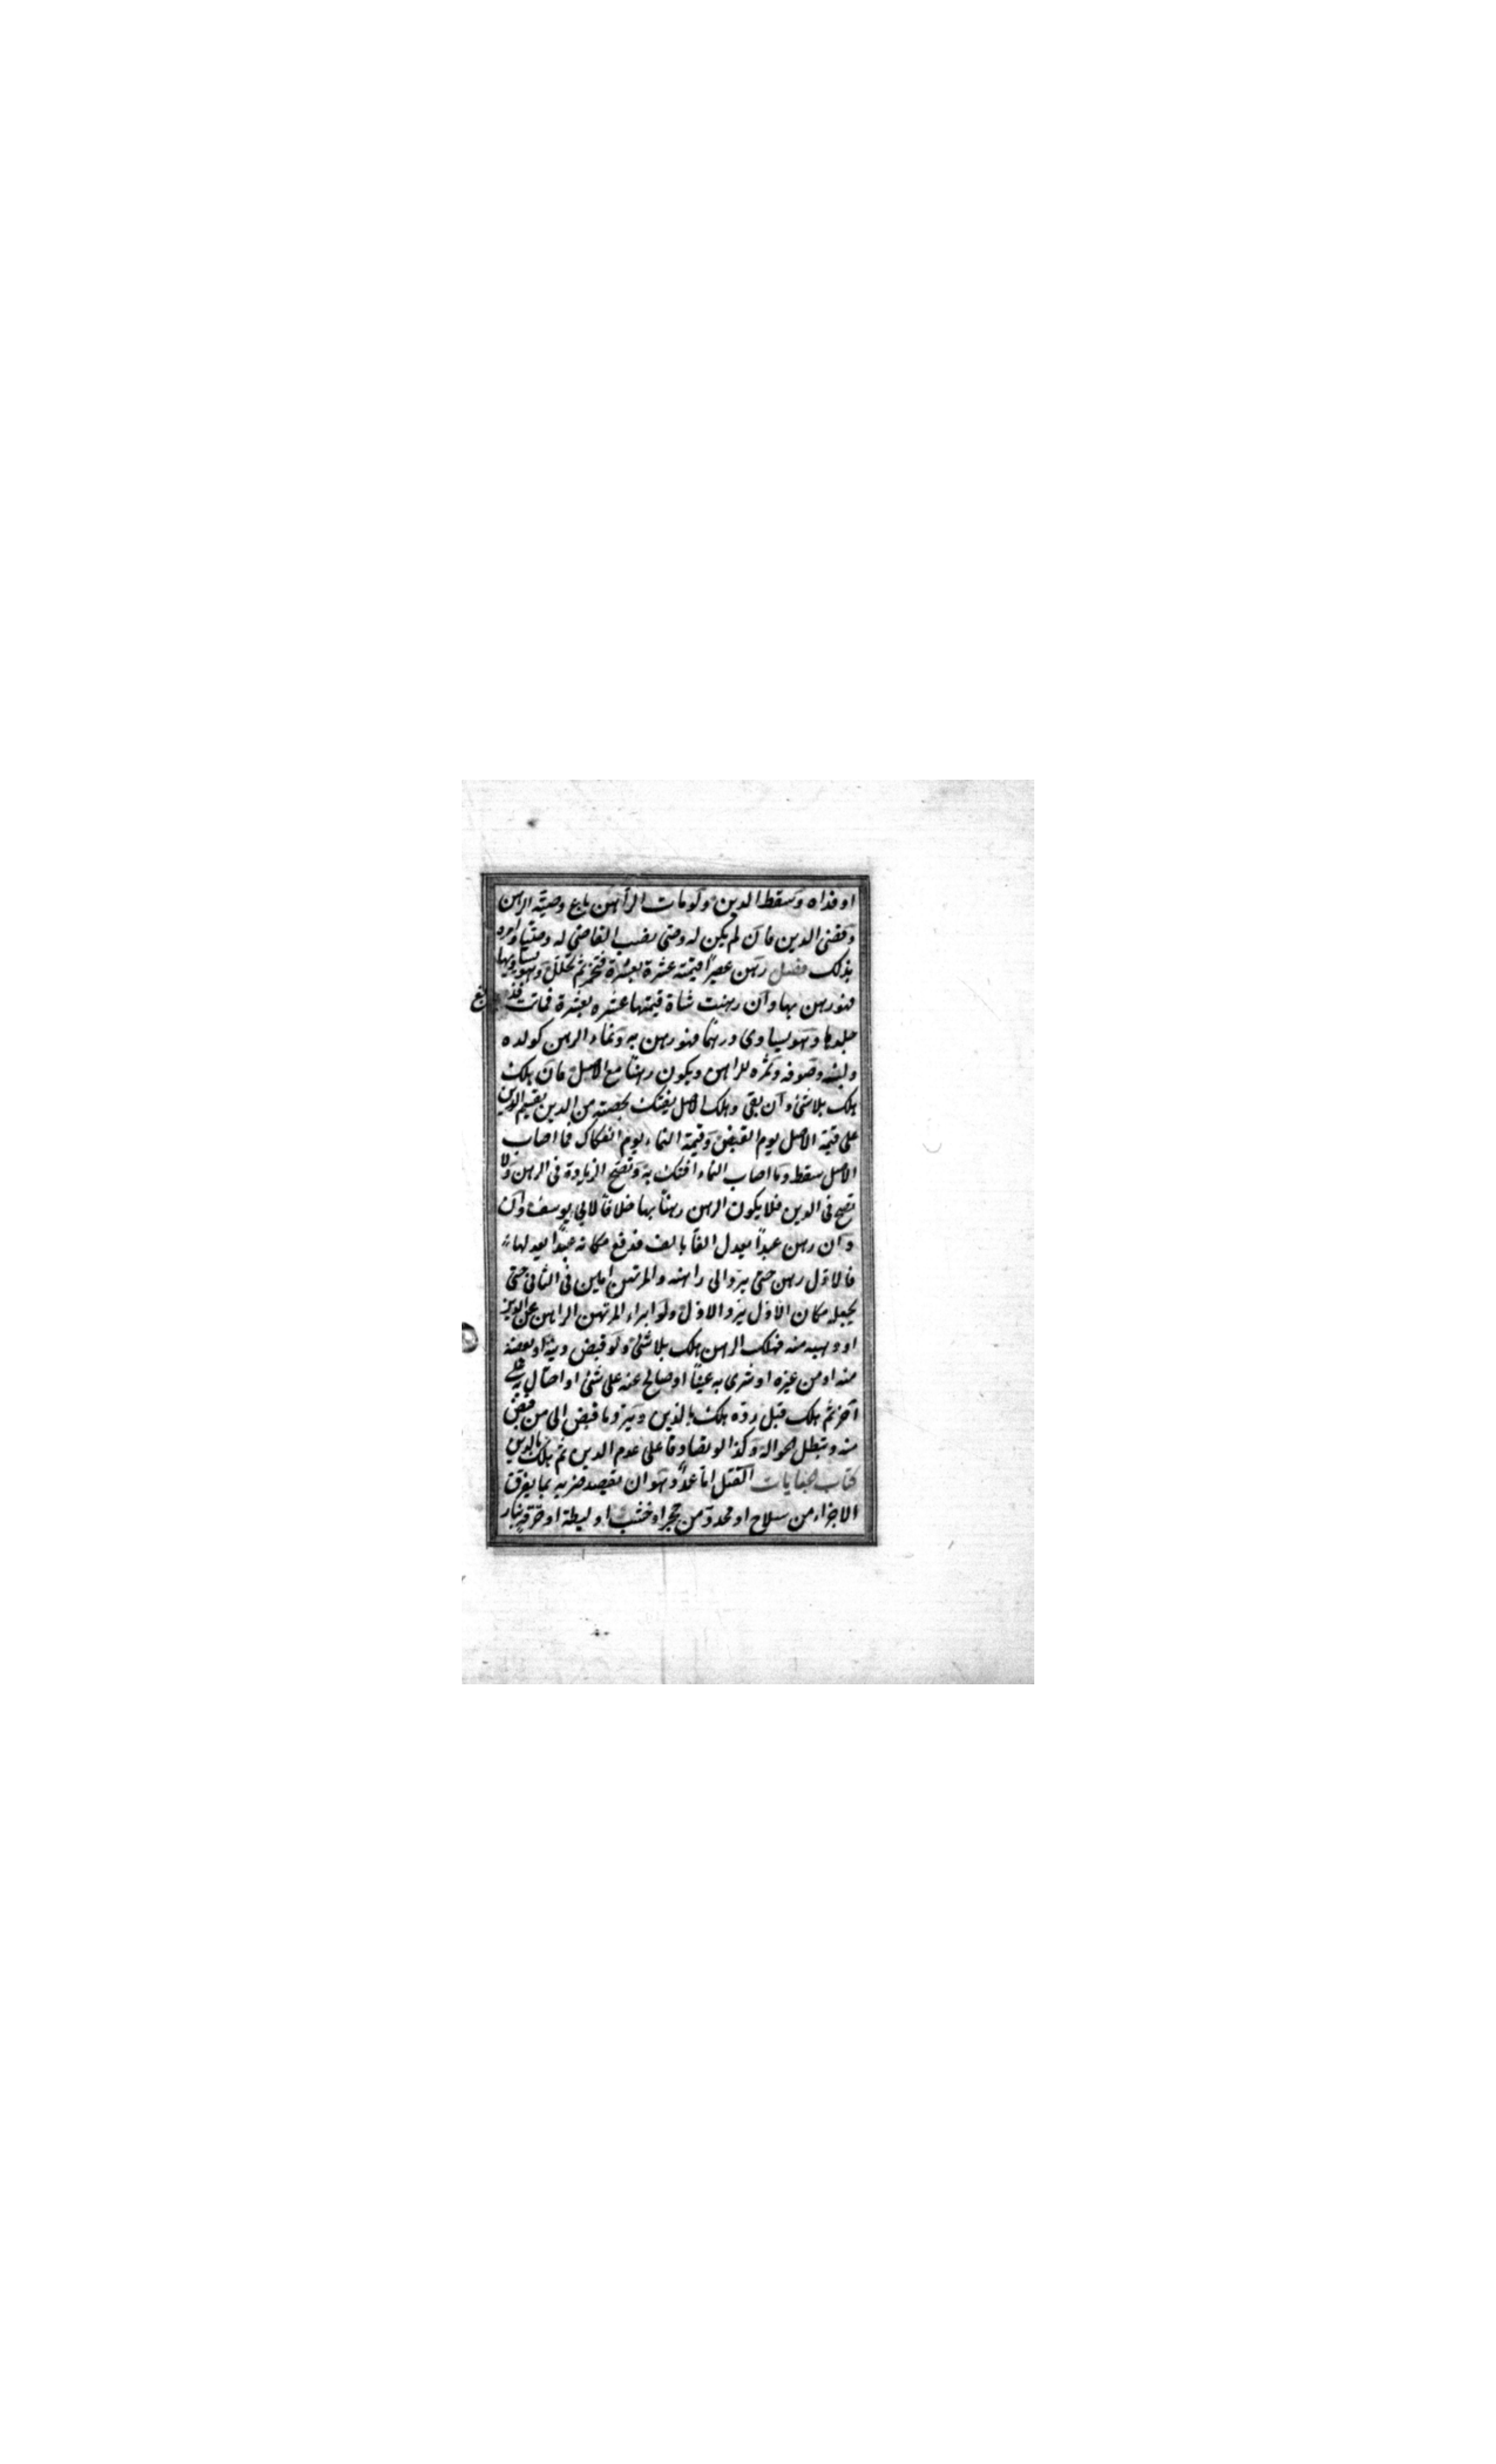 او فداه وسقط الدين ولو مات الراهن باع وصيه الرهن
وقضى الدين فان لم يكن له وصى نصب القاضى له وصيا وامره
بذلك فصل رهن عصيرا قيمته عشرة بعشرة فتخمر ثم تخلل وهو يساويها
فهو رهن بها وان رهنت شاة قيمتها عشره بعشرة فماتت فدبغ
جلدها وهو يساوى درهما فهو رهن به ونماء الرهن كولده
ولبنه وصوفه وثمره للراهن ويكون رهنا مع الاصل فان هلك
هلك بلا شئ وان بقى وهلك الاصل يفتك بحصته من الدين يقسم الدين
على قيمة الاصل يوم القبض وقيمة النماء يوم الفكاك فما اصاب
الاصل سقط وما اصاب النماء افتك به وتصح الزيادة فى الرهن ولا
تصح فى الدين فلا يكون الرهن رهنا بها خلافا لابى يوسف وان
وان رهن عبدا يعدل الفا بالف فدفع مكانه عبدا يعدلها
فالاول رهن حتى يرد الى راهنه والمرتهن امين فى الثانى حتى
يجعله مكان الاول برد الاول ولو ابراء المرتهن الراهن عن الدين
او وهبه منه فهلك الرهن هلك بلا شئ ولو قبض دينه او بعضه
منه او من غيره او شرى به عينا او صالح عنه على شئ او احتال به على
آخر ثم هلك قبل رده هلك بالدين ويرد ما قبض الى من قبض
منه وتبطل الحوالة وكذا لو تصادقا على عدم الدين ثم هلك بالدين
كتاب الجنايات القتل اما عمد وهو ان يقصد ضربه بما يفرق
الاجزاء من سلاح او محدد من حجر او خشب او ليطة او حرقه بنار